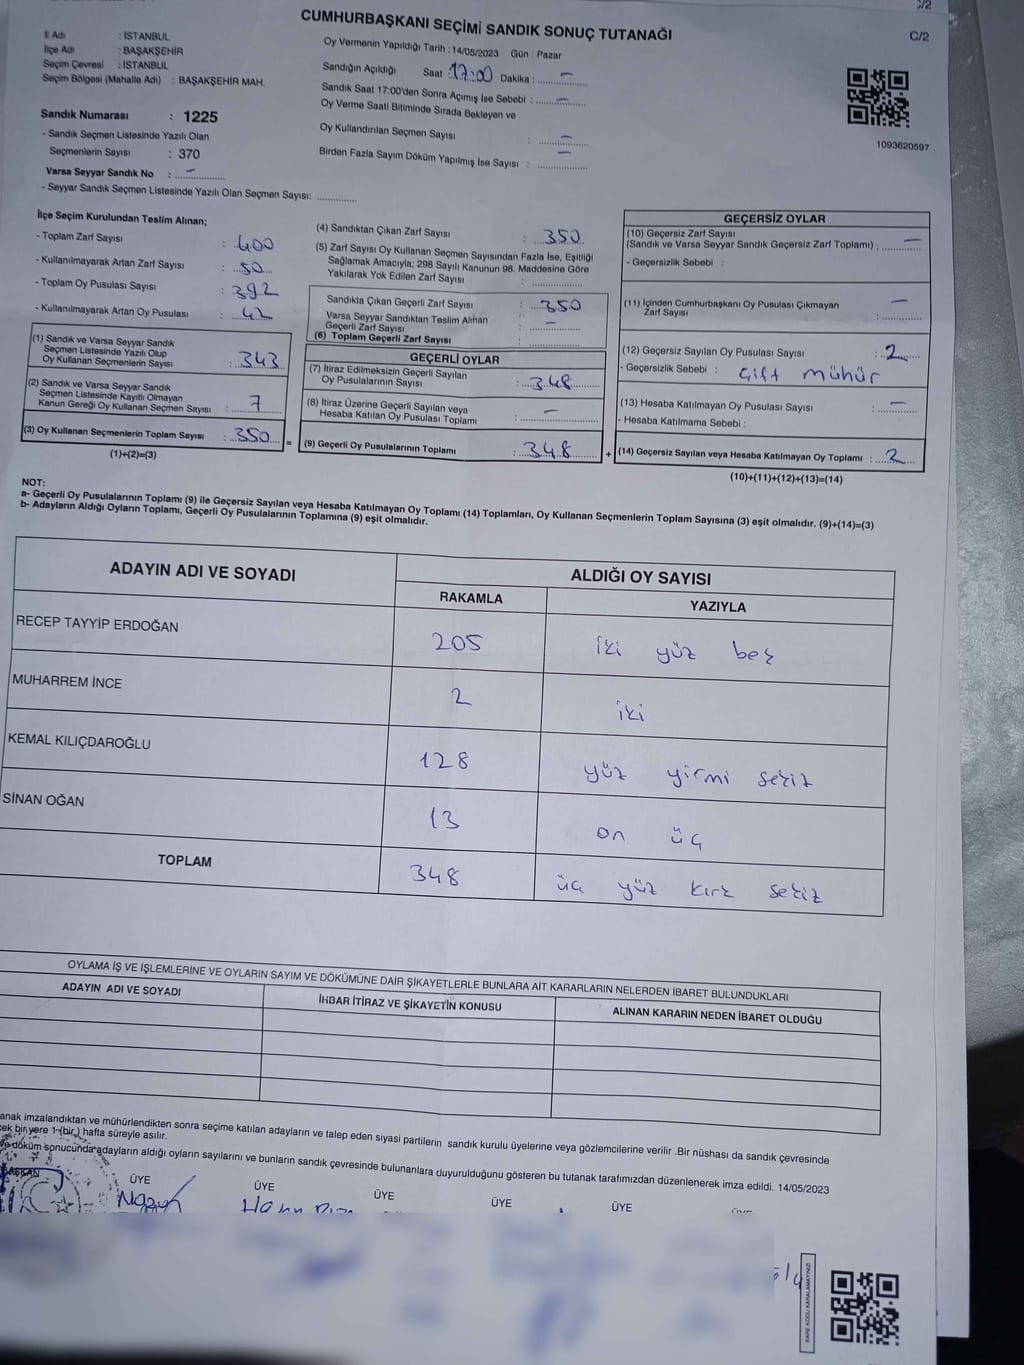 C/2
CUMHURBAŞKANI SEÇİMİ SANDIK SONUÇ TUTANAĞI
C/2
İl Adı : İSTANBUL
İlçe Adı : BAŞAKŞEHİR
Seçim Çevresi : İSTANBUL
Seçim Bölgesi (Mahalle Adı) : BAŞAKŞEHİR MAH.
Oy Vermenin Yapıldığı Tarih : 14/05/2023 Gün : Pazar
Sandığın Açıldığı Saat : 17:00 Dakika : –
Sandık Saat 17:00'den Sonra Açımış İse Sebebi : –
Oy Verme Saati Bitiminde Sırada Bekleyen ve
Oy Kullandırılan Seçmen Sayısı : –
Birden Fazla Sayım Döküm Yapılmış İse Sayısı : –
1093620597
Sandık Numarası : 1225
- Sandık Seçmen Listesinde Yazılı Olan
Seçmenlerin Sayısı : 370
Varsa Seyyar Sandık No : –
- Seyyar Sandık Seçmen Listesinde Yazılı Olan Seçmen Sayısı:
İlçe Seçim Kurulundan Teslim Alınan;
- Toplam Zarf Sayısı : 400
- Kullanılmayarak Artan Zarf Sayısı : 50
- Toplam Oy Pusulası Sayısı : 392
- Kullanılmayarak Artan Oy Pusulası : 42
(1) Sandık ve Varsa Seyyar Sandık
Seçmen Listesinde Yazılı Olup
Oy Kullanan Seçmenlerin Sayısı : 343
(2) Sandık ve Varsa Seyyar Sandık
Seçmen Listesinde Kayıtlı Olmayan
Kanun Gereği Oy Kullanan Seçmen Sayısı : 7
(3) Oy Kullanan Seçmenlerin Toplam Sayısı : 350 =
(1)+(2)=(3)
(4) Sandıktan Çıkan Zarf Sayısı : 350
(5) Zarf Sayısı Oy Kullanan Seçmen Sayısından Fazla İse, Eşitliği
Sağlamak Amacıyla; 298 Sayılı Kanunun 98. Maddesine Göre
Yakılarak Yok Edilen Zarf Sayısı :
Sandıkta Çıkan Geçerli Zarf Sayısı : 350
Varsa Seyyar Sandıktan Teslim Alınan
Geçerli Zarf Sayısı : –
(6) Toplam Geçerli Zarf Sayısı :
GEÇERLİ OYLAR
(7) İtiraz Edilmeksizin Geçerli Sayılan
Oy Pusulalarının Sayısı : 348
(8) İtiraz Üzerine Geçerli Sayılan veya
Hesaba Katılan Oy Pusulası Toplamı : –
(9) Geçerli Oy Pusulalarının Toplamı : 348 +
GEÇERSİZ OYLAR
(10) Geçersiz Zarf Sayısı
(Sandık ve Varsa Seyyar Sandık Geçersiz Zarf Toplamı) : –
- Geçersizlik Sebebi :
(11) İçinden Cumhurbaşkanı Oy Pusulası Çıkmayan
Zarf Sayısı : –
(12) Geçersiz Sayılan Oy Pusulası Sayısı : 2
- Geçersizlik Sebebi : Çift mühür
(13) Hesaba Katılmayan Oy Pusulası Sayısı : –
- Hesaba Katılmama Sebebi :
(14) Geçersiz Sayılan veya Hesaba Katılmayan Oy Toplamı : 2
(10)+(11)+(12)+(13)=(14)
NOT:
a- Geçerli Oy Pusulalarının Toplamı (9) ile Geçersiz Sayılan veya Hesaba Katılmayan Oy Toplamı (14) Toplamları, Oy Kullanan Seçmenlerin Toplam Sayısına (3) eşit olmalıdır. (9)+(14)=(3)
b- Adayların Aldığı Oyların Toplamı, Geçerli Oy Pusulalarının Toplamına (9) eşit olmalıdır.
ADAYIN ADI VE SOYADI
ALDIĞI OY SAYISI
RAKAMLA YAZIYLA
RECEP TAYYİP ERDOĞAN 205 iki yüz beş
MUHARREM İNCE 2 iki
KEMAL KILIÇDAROĞLU 128 yüz yirmi sekiz
SİNAN OĞAN 13 on üç
TOPLAM 348 üç yüz kırk sekiz
OYLAMA İŞ VE İŞLEMLERİNE VE OYLARIN SAYIM VE DÖKÜMÜNE DAİR ŞİKAYETLERLE BUNLARA AİT KARARLARIN NELERDEN İBARET BULUNDUKLARI
ADAYIN ADI VE SOYADI İHBAR İTİRAZ VE ŞİKAYETİN KONUSU ALINAN KARARIN NEDEN İBARET OLDUĞU
anak imzalandıktan ve mühürlendikten sonra seçime katılan adayların ve talep eden siyasi partilerin sandık kurulu üyelerine veya gözlemcilerine verilir .Bir nüshası da sandık çevresinde
cek bir yere 1 (bir ) hafta süreyle asılır.
ve döküm sonucunda adayların aldığı oyların sayılarını ve bunların sandık çevresinde bulunanlara duyurulduğunu gösteren bu tutanak tarafımızdan düzenlenerek imza edildi. 14/05/2023
BAŞKAN ÜYE ÜYE ÜYE ÜYE ÜYE ÜYE
KARE KODU KARALAMAYINIZ!